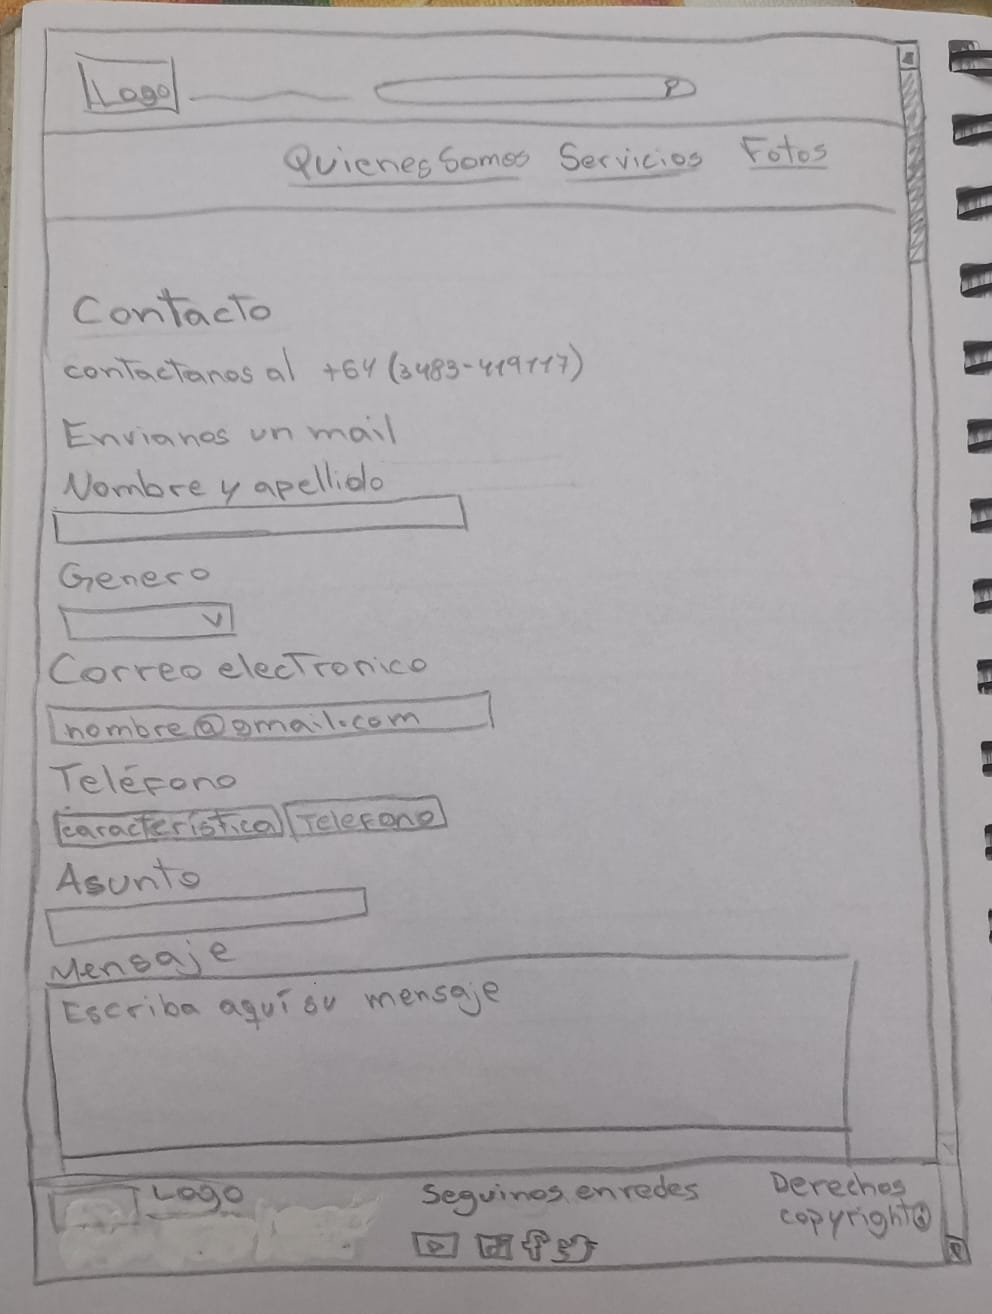 Logo
Quienes Somos Servicios Fotos
Contacto
contactanos al +64 (3483-419117)
Envianos un mail
Nombre y apellido
Genero
Correo electronico
nombre@gmail.com
Teléfono
característica Telefono
Asunto
Mensaje
Escriba aquí su mensaje
Logo Seguinos en redes Derechos
copyright©